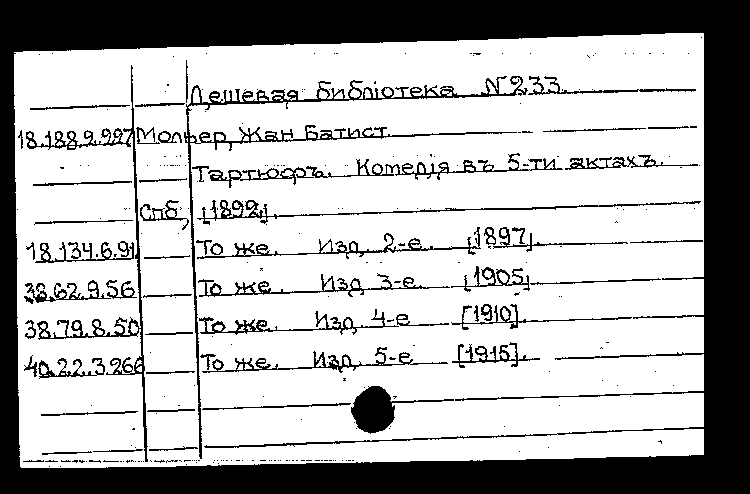 Дешевая библіотека N 233.
18.188.9.997 Мольер, Жан Батист
Тартюфъ. Комедія въ 5-ти актахъ.
Спб, [1892].
18.134.6.91 То же. Изд. 2-е. [1897].
38.62.9.56 То же. Изд. 3-е. [1905].
38.79.8.50 То же. Изд. 4-е [1910].
40.22.3.266 То же. Изд. 5-е [1915].